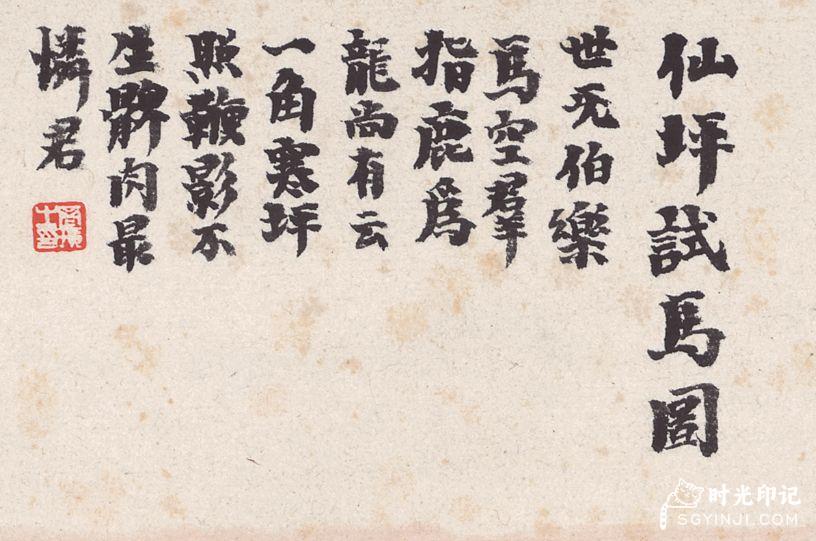 仙坪試馬圖
世无伯樂
馬空羣
指鹿爲
龍尚有云
一角寒坪
照鞭影不
生髀肉最
憐君
时光印记
SGYINJI.COM